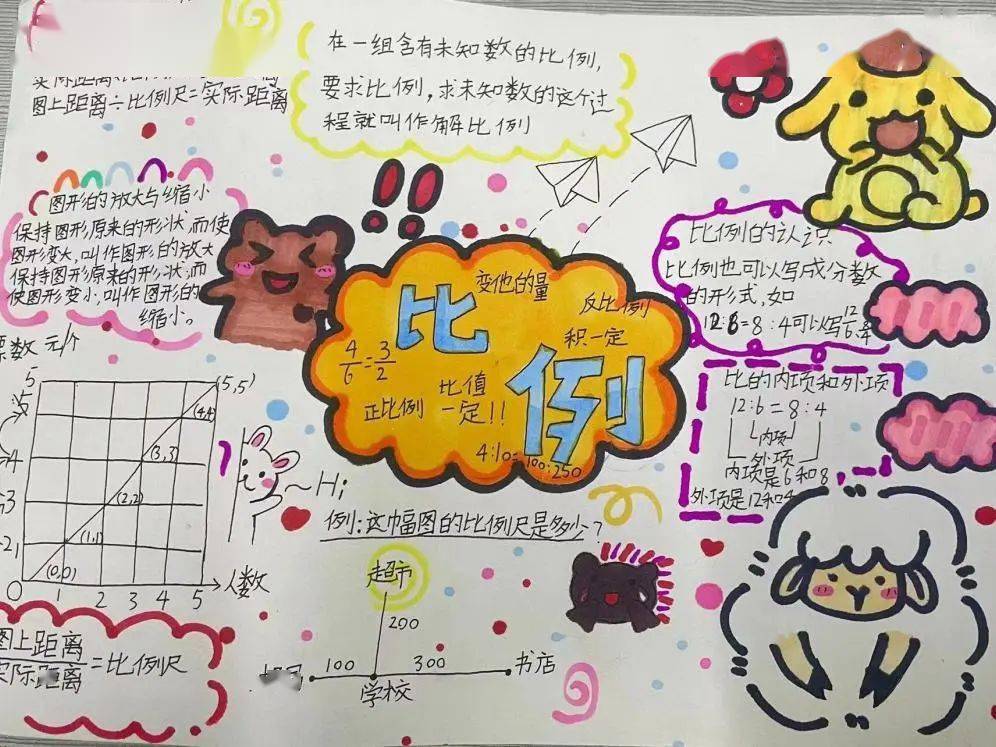 图上距离÷比例尺=实际距离
在一组含有未知数的比例,
要求比例,求未知数的这个过
程就叫作解比例
图形的放大与缩小
保持图形原来的形状,而使
图形变大,叫作图形的放大
保持图形原来的形状,而
使图形变小,叫作图形的
缩小。
比例
变他的量
反比例
积一定
4/6=3/2
正比例
比值
一定!!
4:10=100:250
比例的认识
比例也可以写成分数
的形式,如
12:6=8:4可以写12
6:4
比的内项和外项
12:6=8:4
内项
外项
内项是6和8
外项是12和4
票数 元/个
5
4
3
2
1
0
1 2 3 4 5
人数
(5,5)
(4,4)
(3,3)
(2,2)
(1,1)
(0,0)
Hi
例:这幅图的比例尺是多少?
超市
200
100
300
书店
学校
图上距离
实际距离
=比例尺